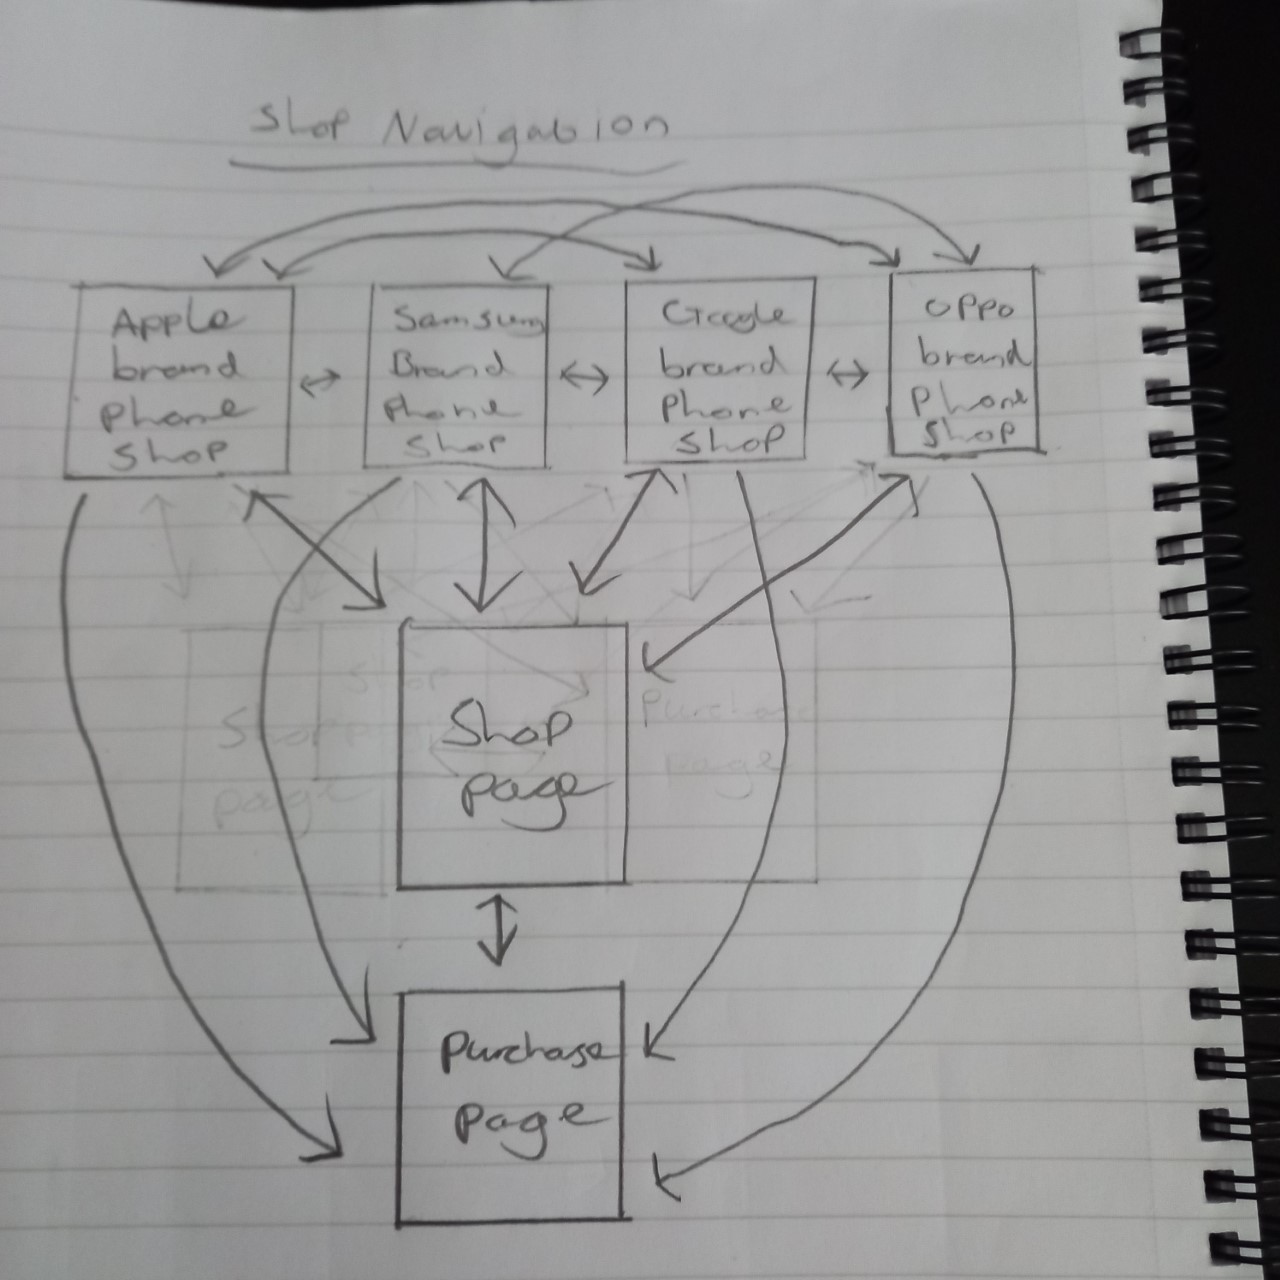 Shop Navigation
Apple
brand
Phone
Shop
Samsung
Brand
Phone
Shop
Google
brand
Phone
Shop
OPPO
brand
Phone
Shop
Shop
page
Purchase
page
Shop
Shop
page
Purchase
page